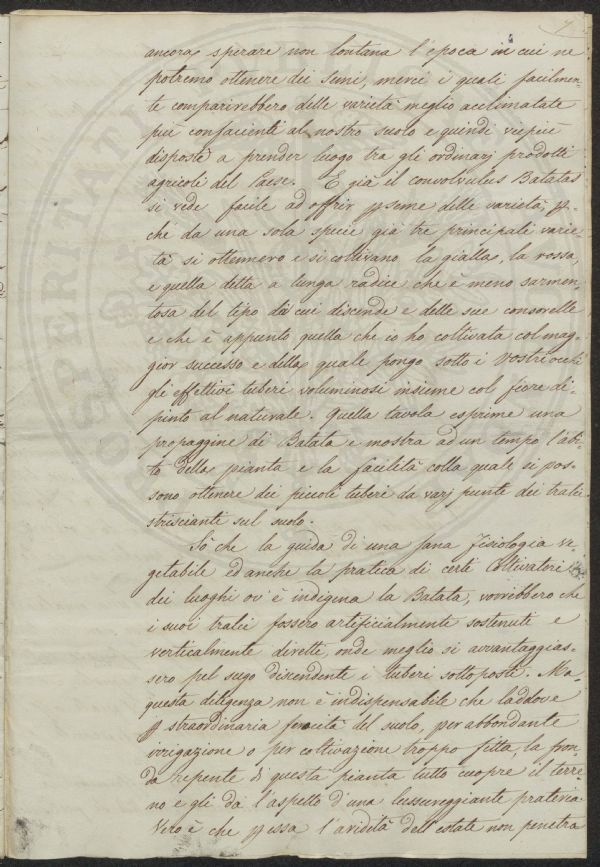 ancora sperare non lontana l'epoca in cui ne
potremo ottenere dei semi, mercè i quali facilmen-
te comparirebbero delle varietà meglio acclimatate
più confacienti al nostro suolo e quindi viepiù
disposte a prender luogo tra gli ordinarj prodotti
agricoli del Paese. E già il convolvulus Batatas
si vede facile ad offrir pseme delle varietà, p-
chè da una sola specie già tre principali varie-
tà si ottennero e si coltivano la gialla, la rossa,
e quella detta a lunga radice che è meno sarmen-
tosa del tipo da cui discende e delle sue consorelle
e che è appunto quella che io ho coltivata col mag-
gior successo e della quale pongo sotto i Vostri occhi
gli effettivi tuberi voluminosi insieme col fiore di-
pinto al naturale. Quella tavola esprime una
propaggine di Batata e mostra ad un tempo l'abi-
to della pianta e la facilità colla quale si pos-
sono ottenere dei piccoli tuberi da varj punti dei tralci
striscianti sul suolo.
Sò che la guida di una sana Fisiologia ve-
getabile ed anche la pratica di certi Coltivatori
dei luoghi ov'è indigena la Batata, vorrebbero che
i suoi tralci fossero artificialmente sostenuti e
verticalmente diretti, onde meglio si avvantaggias-
sero pel sugo discendente i tuberi sottoposti. Ma
questa diligenza non è indispensabile che laddove
p straordinaria feracità del suolo, per abbondante
irrigazione o per coltivazione troppo fitta, la fron-
da repente di questa pianta tutto cuopre il terre-
no e gli da l'aspetto d'una lussureggiante prateria
Vero è che p essa l'aridità dell'estate non penetra